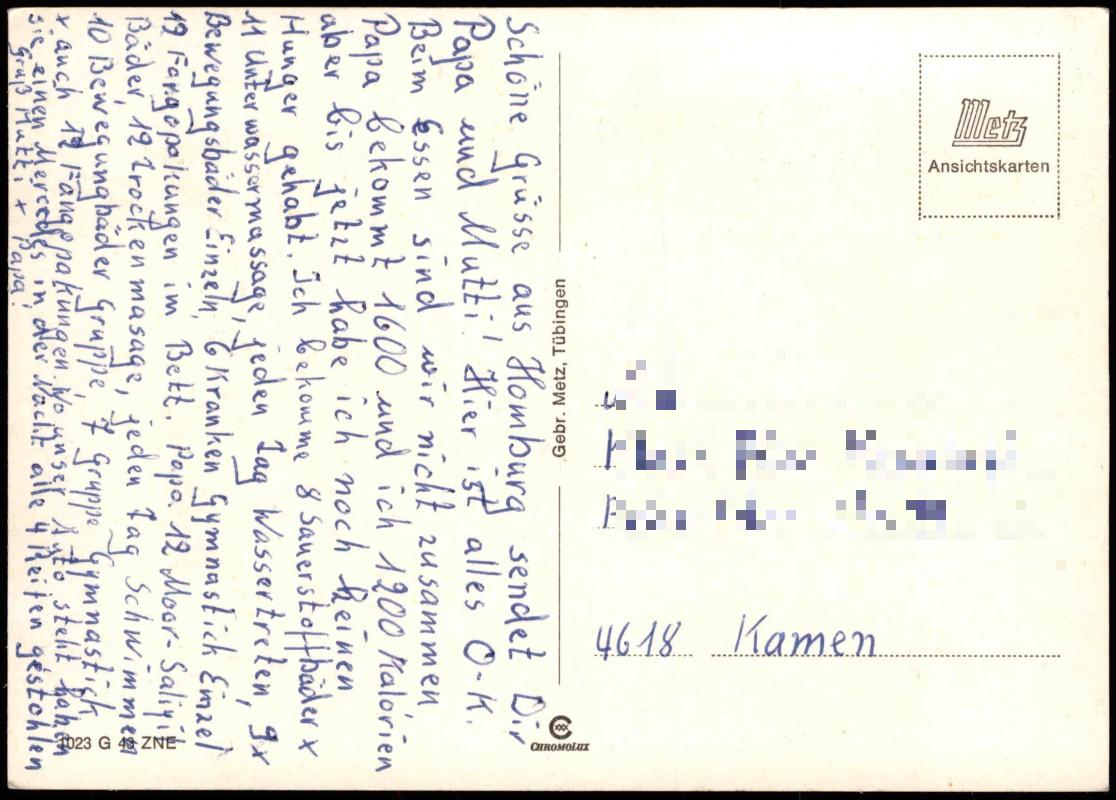 Schöne Grüsse aus Homburg sendet Dir
Papa und Mutti! Hier ist alles O-K.
Beim Essen sind wir nicht zusammen,
Papa bekommt 1600 und ich 1200 Kalorien
aber bis jetzt habe ich noch keinen
Hunger gehabt. Ich bekomme 8 Sauerstoffbäder x
11 Unterwassermassage, jeden Tag Wassertreten, 9x
Bewegungsbäder Einzeln, 6 Kranken Gymnastick Einzel
12 Fangopakungen im Bett. Papa 12 Moor-Saliyil
Bäder, 12 trockenmasage, jeden Tag Schwimmen
10 Bewegungbäder Gruppe, 7 Gruppe Gymnastik
x auch 12 Fangopakungen, Wo unser Auto steht haben
sie einen Mercedes in der Nacht alle 4 Reifen gestohlen
Gruß Mutti x Papa!
1023 G 43 ZNE
Gebr. Metz, Tübingen
CHROMOLUX
Metz
Ansichtskarten
4618 Kamen